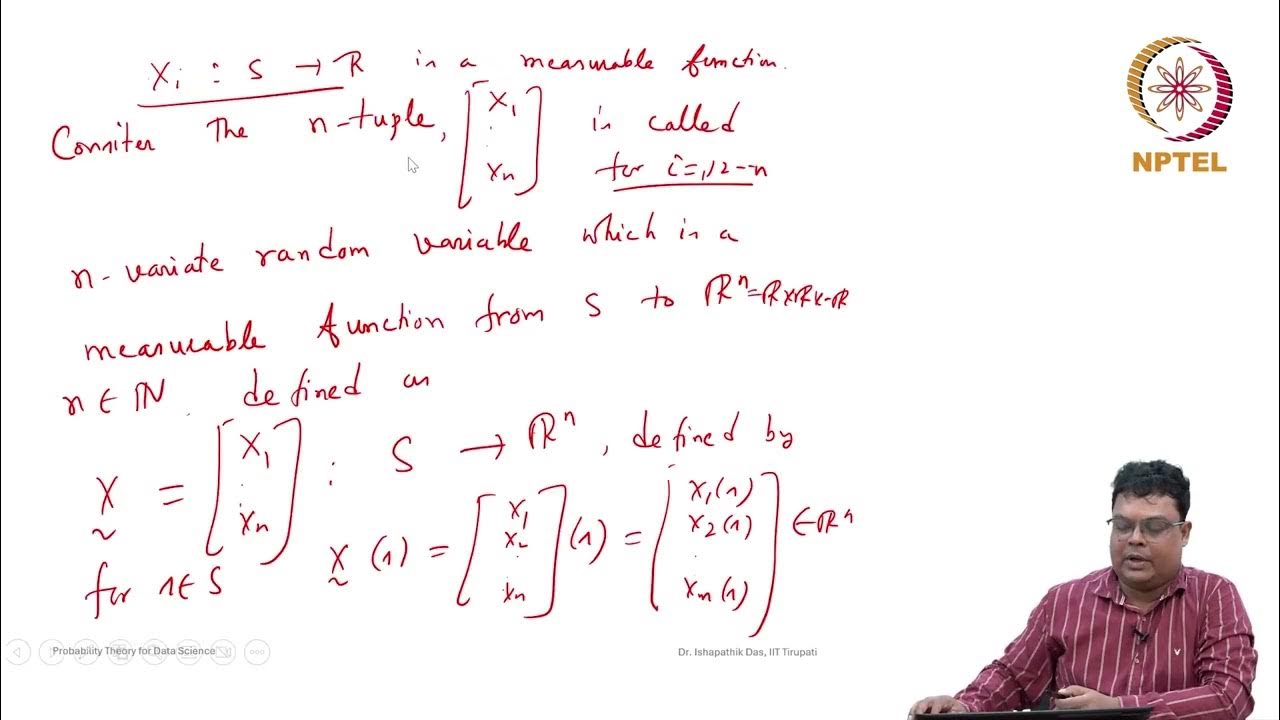 X_i : S → ℝ is a measurable function.
Consiter the n-tuple, [X_1 . . X_n] is called
for i=1,2--n
n-variate random variable which is a
measurable function from S to ℝ^n=ℝxℝx-ℝ
n ∈ ℕ. defined as
X_~ = [X_1 . . X_n] : S → ℝ^n, defined by
for s∈S X_~(s) = [X_1 X_2 . . X_n](s) = [X_1(s) X_2(s) . X_n(s)] ∈ℝ^n
NPTEL
Probability Theory for Data Science
Dr. Ishapathik Das, IIT Tirupati